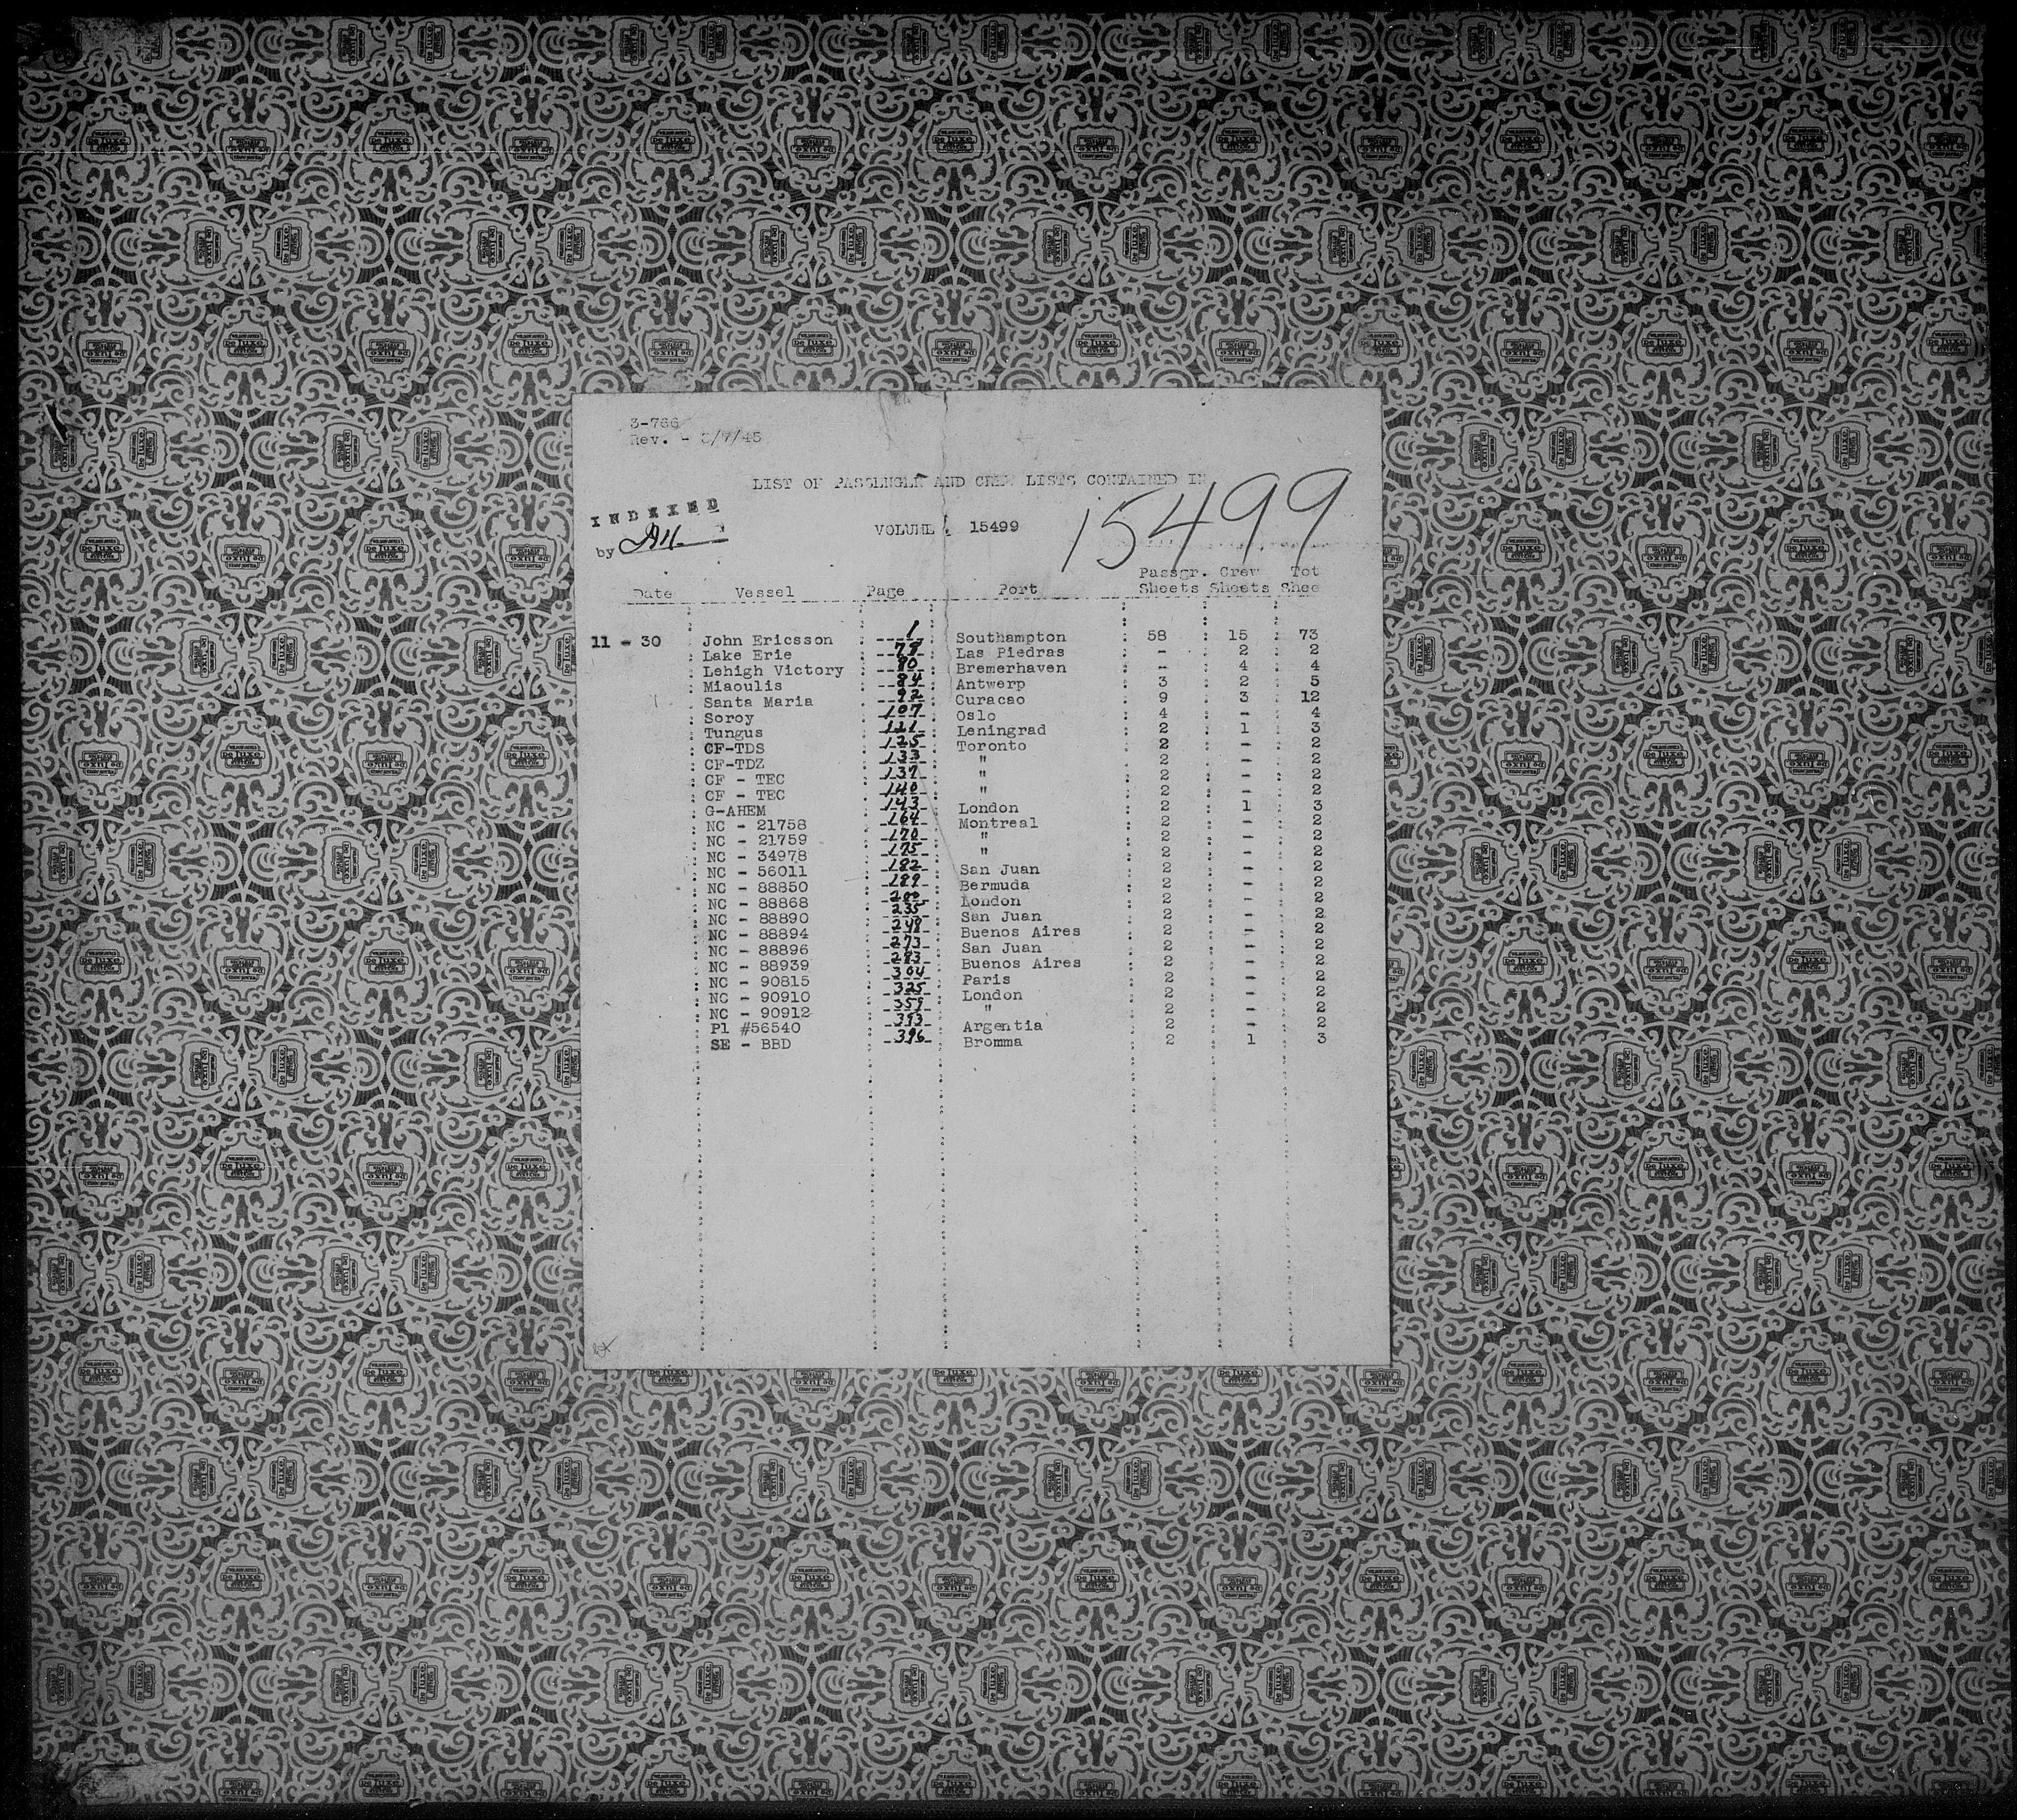 3-766
Rev. - 5/7/45
LIST OF PASSENGER AND CREW LISTS CONTAINED IN
15499
INDEXED
VOLUME : 15499
by
Passgr. Crew Tot
Date Vessel Page Port Sheets Sheets Shee
11 - 30 John Ericsson 1 Southampton 58 15 73
Lake Erie 78 Las Piedras - 2 2
Lehigh Victory 80 Bremerhaven - 4 4
Miaoulis 84 Antwerp 3 2 5
Santa Maria 92 Curacao 9 3 12
Soroy 107 Oslo 4 - 4
Tungus 121 Leningrad 2 1 3
CF-TDS 125 Toronto 2 - 2
CF-TDZ 133 " 2 - 2
CF - TEC 137 " 2 - 2
CF - TEC 140 " 2 - 2
G-AHEM 143 London 2 1 3
NC - 21758 164 Montreal 2 - 2
NC - 21759 170 " 2 - 2
NC - 34978 175 " 2 - 2
NC - 56011 182 San Juan 2 - 2
NC - 88850 189 Bermuda 2 - 2
NC - 88868 200 London 2 - 2
NC - 88890 235 San Juan 2 - 2
NC - 88894 248 Buenos Aires 2 - 2
NC - 88896 273 San Juan 2 - 2
NC - 88939 283 Buenos Aires 2 - 2
NC - 90815 304 Paris 2 - 2
NC - 90910 325 London 2 - 2
NC - 90912 359 " 2 - 2
Pl #56540 393 Argentia 2 - 2
SE - BBD 396 Bromma 2 1 3